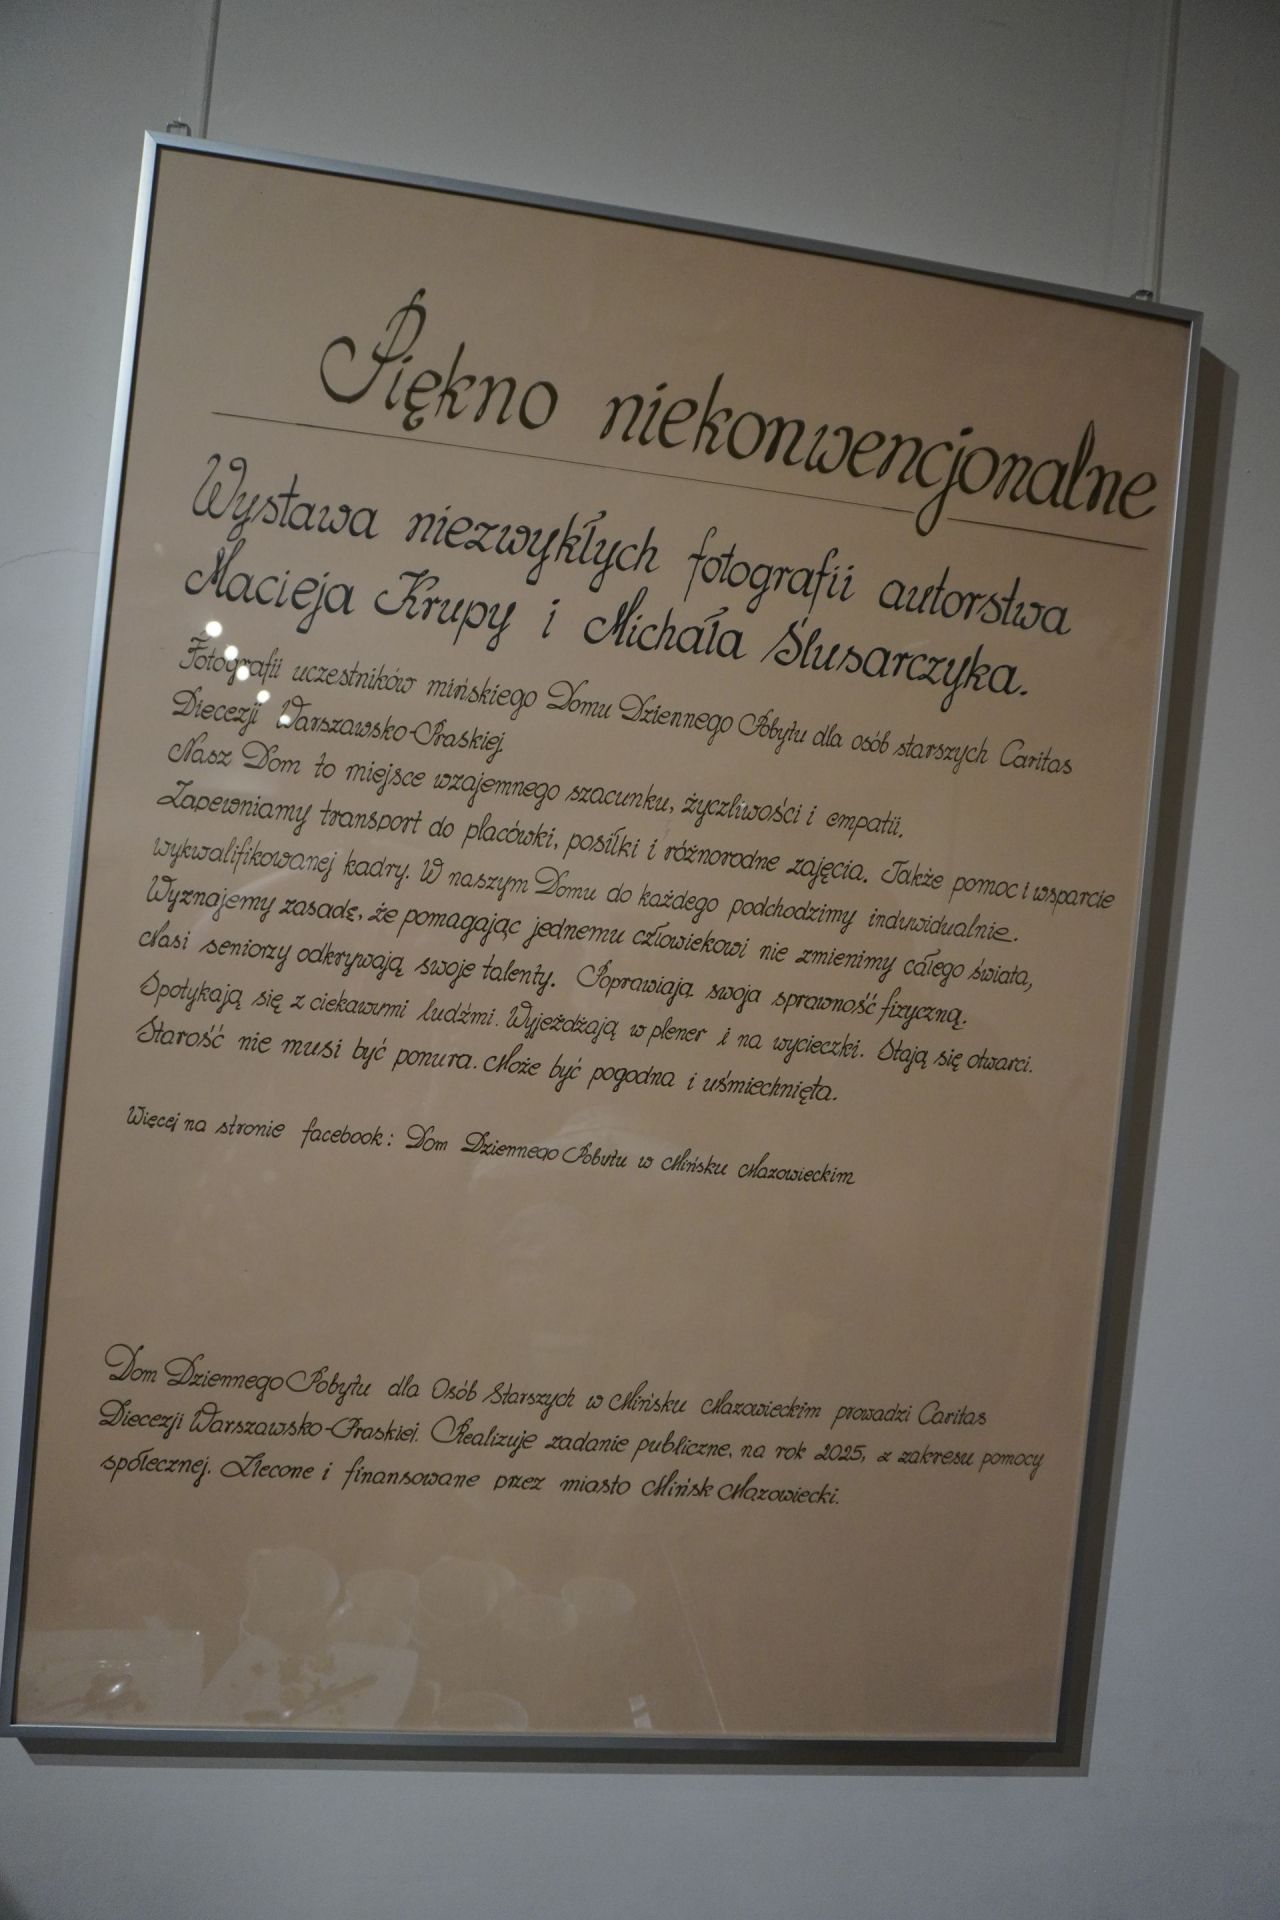 Piękno niekonwencjonalne
Wystawa niezwykłych fotografii autorstwa
Macieja Krupy i Michała Ślusarczyka.
Fotografii uczestników mińskiego Domu Dziennego Pobytu dla osób starszych Caritas
Diecezji Warszawsko-Praskiej.
Nasz Dom to miejsce wzajemnego szacunku, życzliwości i empatii.
Zapewniamy transport do placówki, posiłki i różnorodne zajęcia. Także pomoc i wsparcie
wykwalifikowanej kadry. W naszym Domu do każdego podchodzimy indywidualnie.
Wyznajemy zasadę, że pomagając jednemu człowiekowi nie zmienimy całego świata,
Nasi seniorzy odkrywają swoje talenty. Poprawiają swoja sprawność fizyczną.
Spotykają się z ciekawymi ludźmi. Wyjeżdżają w plener i na wycieczki. Stają się otwarci.
Starość nie musi być ponura. Może być pogodna i uśmiechnięta.
Więcej na stronie facebook: Dom Dziennego Pobytu w Mińsku Mazowieckim
Dom Dziennego Pobytu dla Osób Starszych w Mińsku Mazowieckim prowadzi Caritas
Diecezji Warszawsko-Praskiej. Realizuje zadanie publiczne, na rok 2025, z zakresu pomocy
społecznej. Zlecone i finansowane przez miasto Mińsk Mazowiecki.